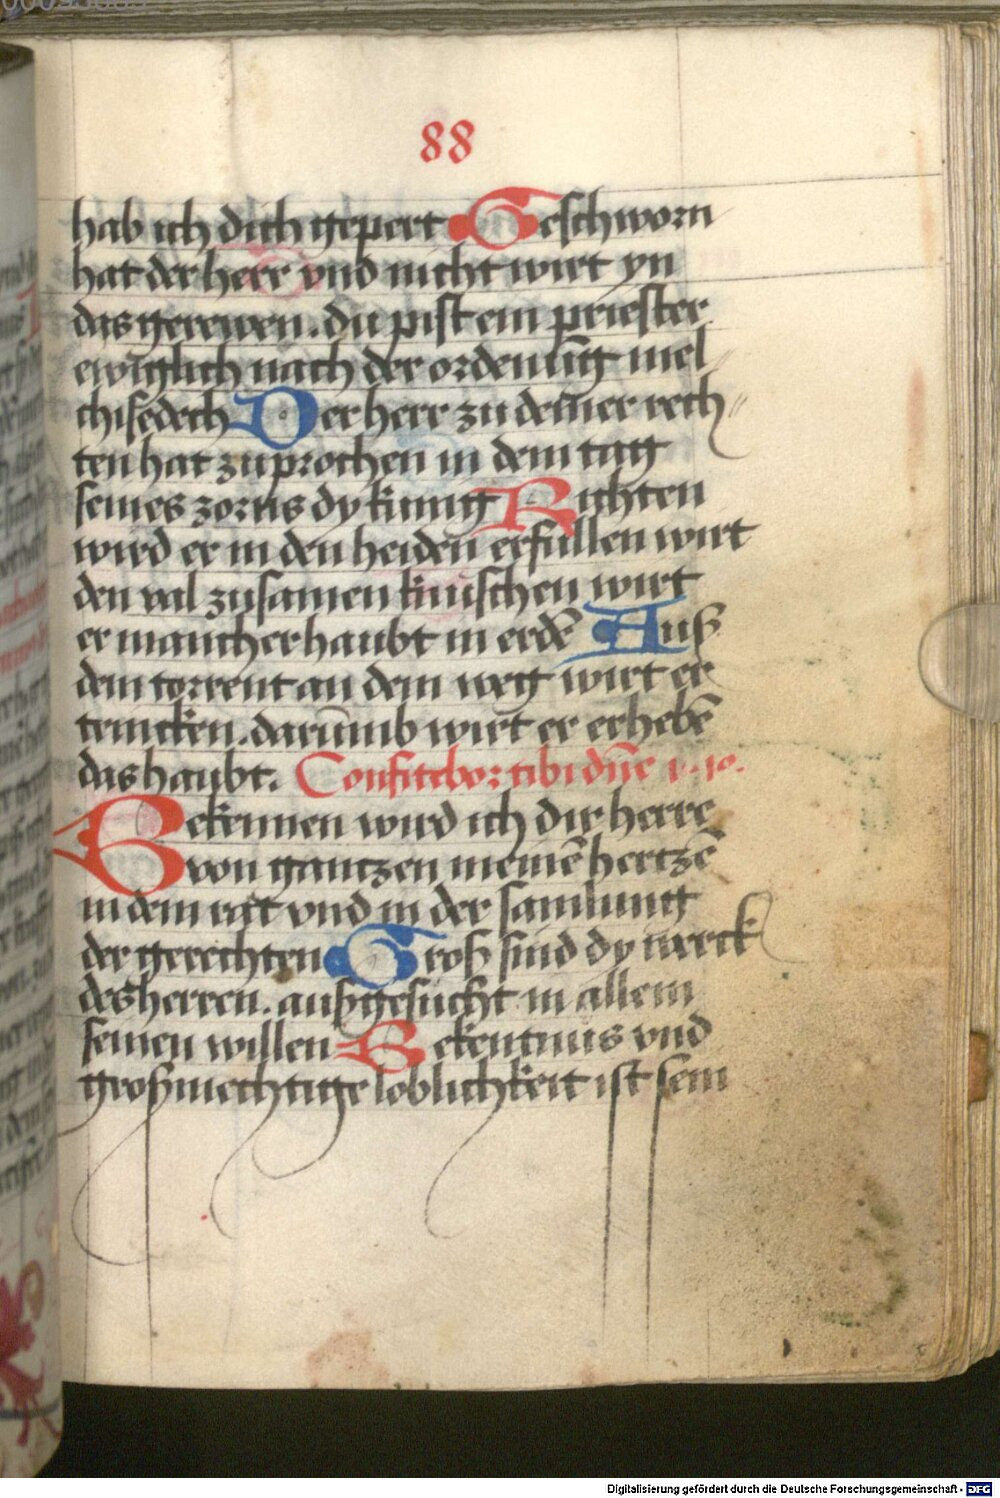 88
hab ich dich gepert Geschworn
hat der herr vnd nicht wirt yn
das gerewen. du pist ein priester
ewiglich nach der ordenūg mel
chisedech Der herr zu deiner rech〃
ten hat zuprochen in dem tag
seines zorns dy kunig Richten
wird er in den heiden erfullen wirt
den val zusamen knischen wirt
er mancher haubt in erdē Auß
dem torrent an dem weg wirt er
trincken. darūmb wirt er erhebē
das haubt. Confitebor tibi dn̄e
Bekennen wird ich dir herre
von gantzen meinē hertzē
in dem rat vnd in der samlung
der gerechten Groß sind dy werck
des herren. außgesucht in allem
seinen willen Bekentnus vnd
großmechtige loblichkeit ist sein
Digitalisierung gefördert durch die Deutsche Forschungsgemeinschaft - DFG